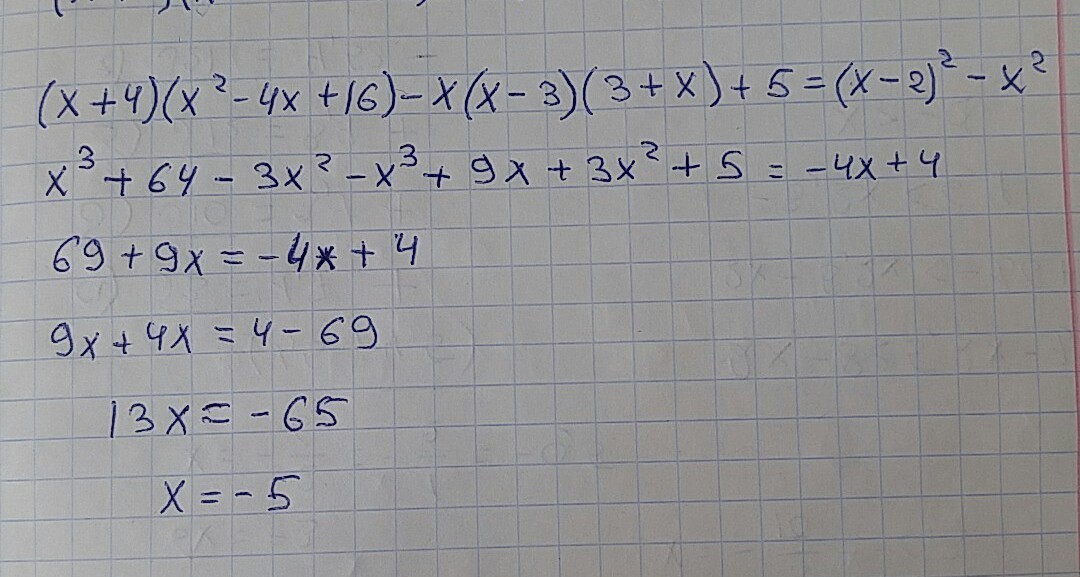 (x+4)(x²-4x+16)-x(x-3)(3+x)+5=(x-2)²-x²
x³+64-3x²-x³+9x+3x²+5=-4x+4
69+9x=-4x+4
9x+4x=4-69
13x=-65
x=-5